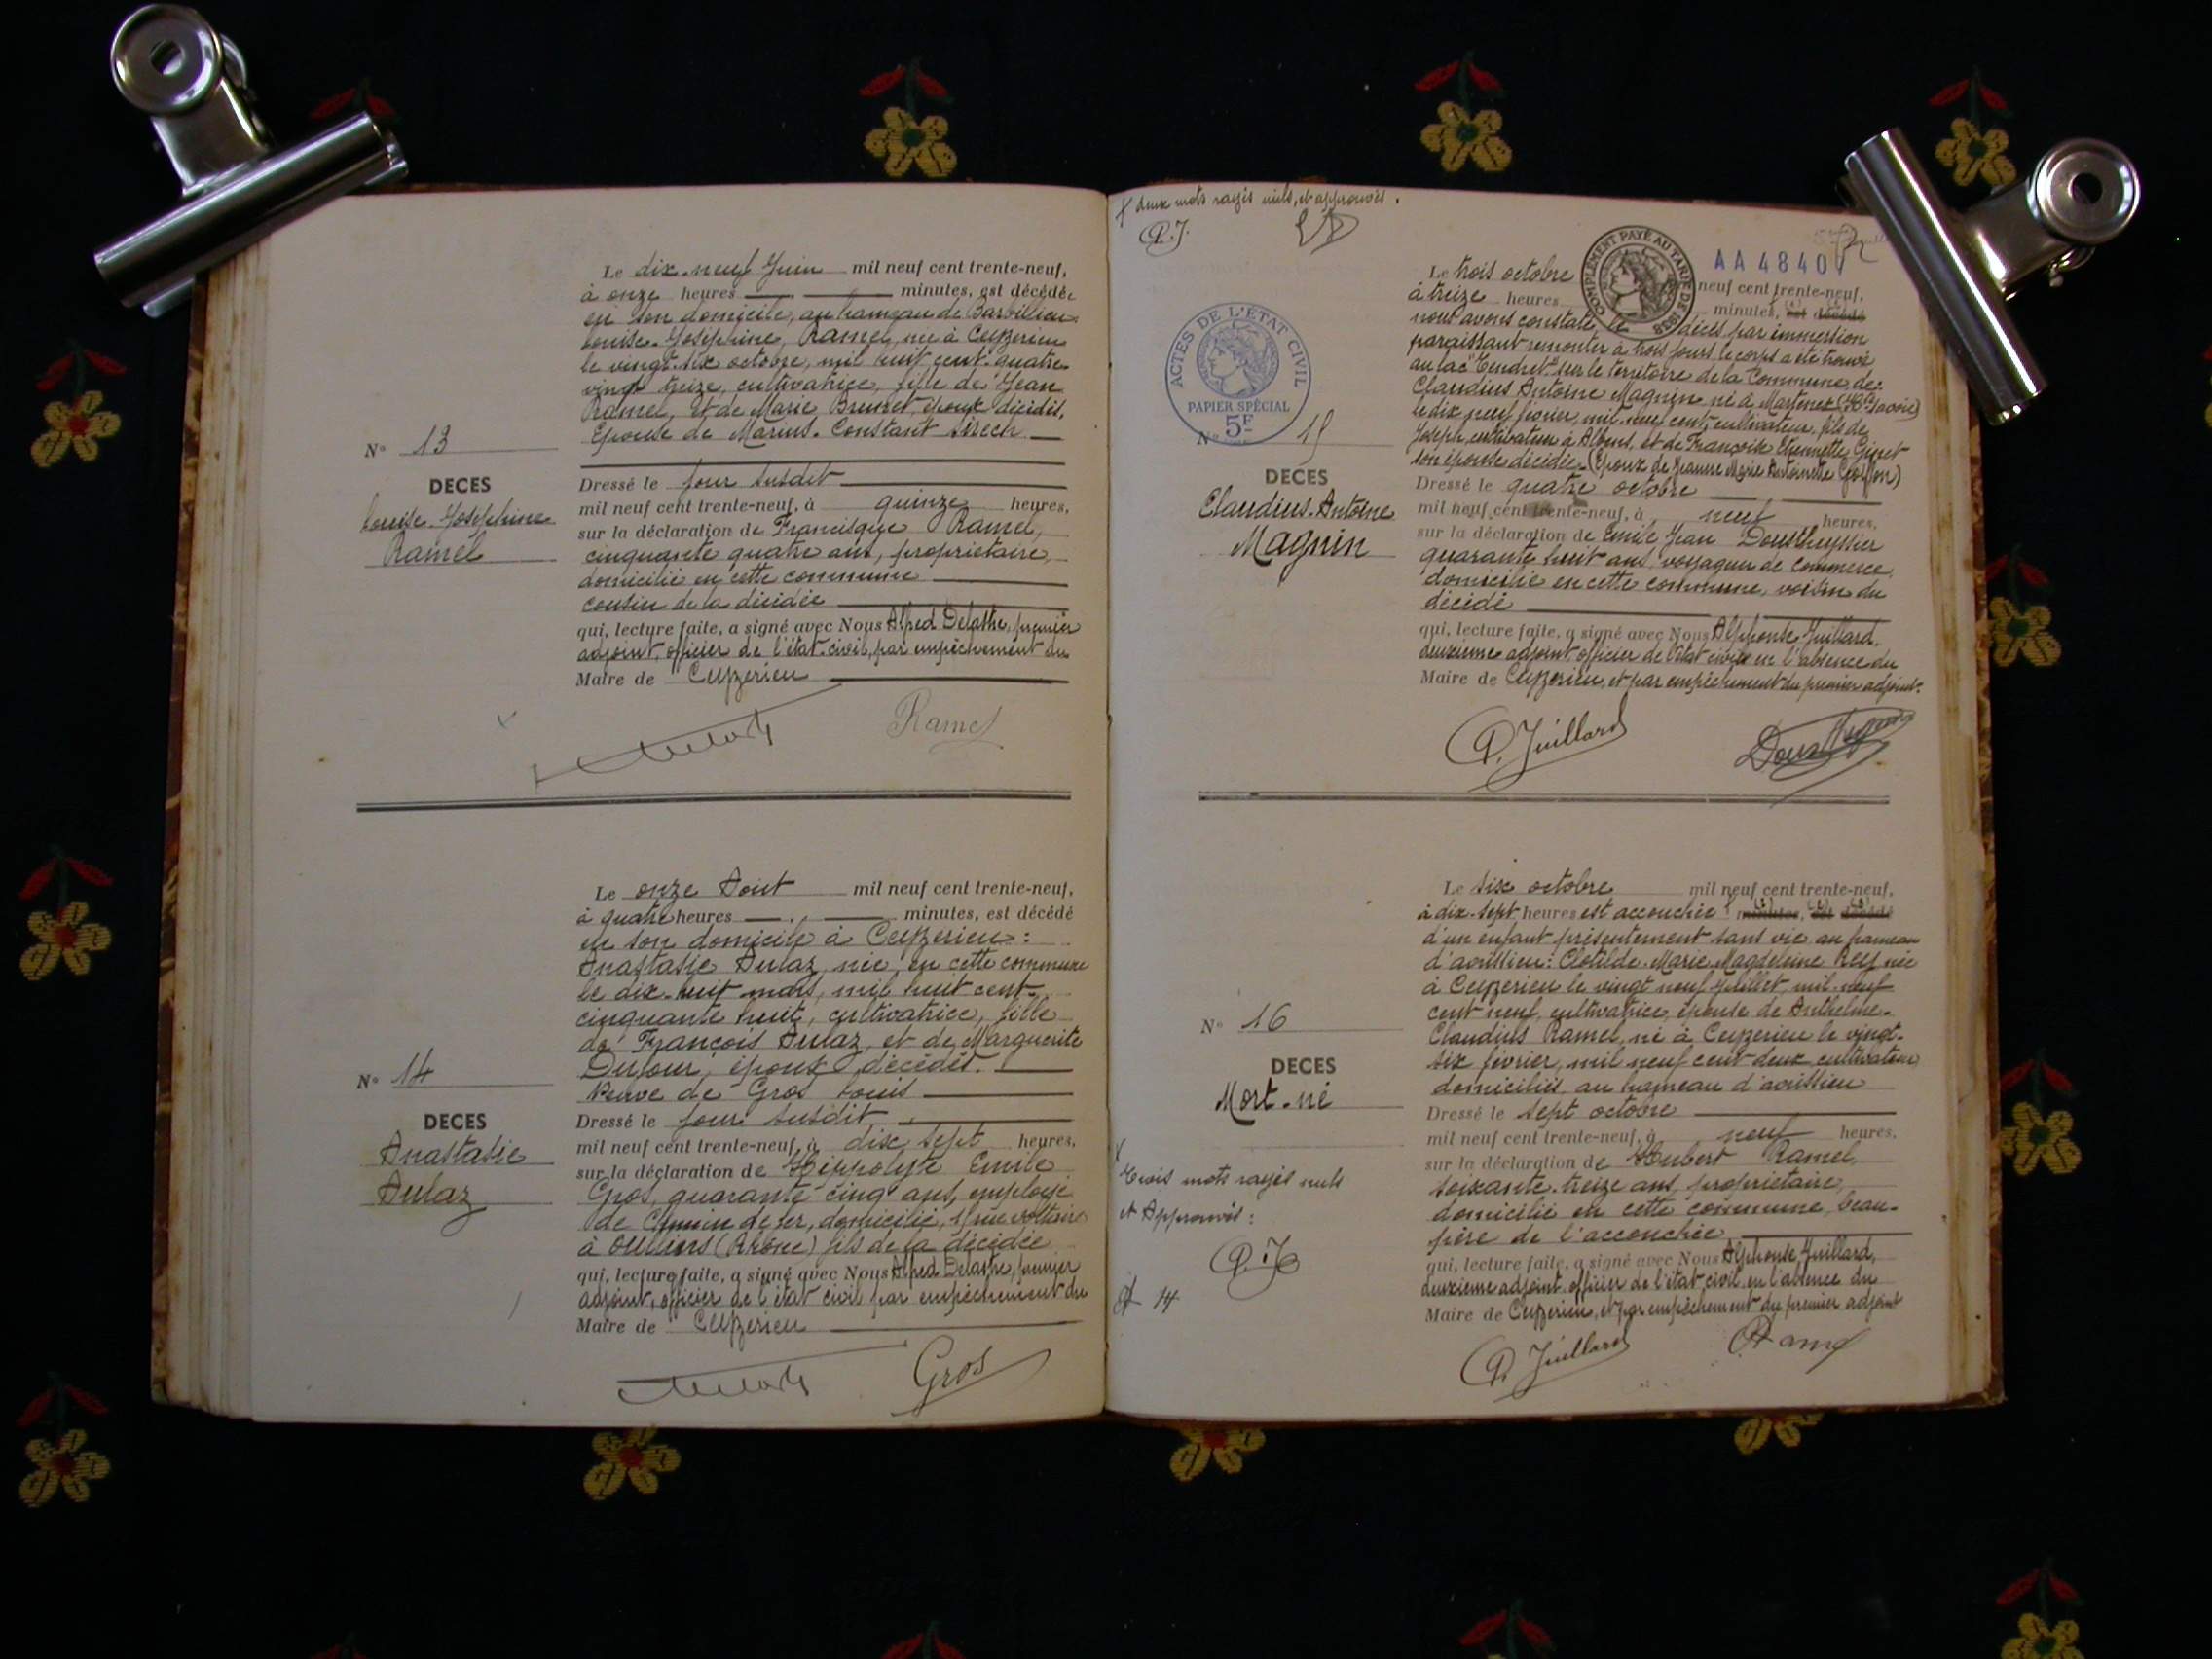 Le dix-neuf Juin mil neuf cent trente-neuf,
à onze heures minutes, est décédée
en son domicile, au hameau de
Louise-Joséphine, Ramel, née à Ceyzerieu
le vingt-six octobre, mil huit cent quatre
vingt treize, cultivatrice, fille de Jean
Ramel, et de Marie Brunet, époux décédés.
Epouse de Marius-Constant
N° 13
DECES
Louise-Joséphine
Ramel
Dressé le jour susdit
mil neuf cent trente-neuf, à quinze heures,
sur la déclaration de Francisque Ramel,
cinquante quatre ans, propriétaire,
domicilié en cette commune
cousin de la décédée
qui, lecture faite, a signé avec Nous Alfred Delastre, premier
adjoint, officier de l'état-civil, par empêchement du
Maire de Ceyzerieu
Ramel
Le onze Août mil neuf cent trente-neuf,
à quatre heures minutes, est décédé
en son domicile à Ceyzerieu :
Anastasie Aulaz, née, en cette commune
le dix-huit mars, mil huit cent
cinquante huit, cultivatrice, fille
de François Aulaz, et de Marguerite
Dufour, époux décédés.
Veuve de Gros Louis
N° 14
DECES
Anastasie
Aulaz
Dressé le jour susdit
mil neuf cent trente-neuf, à dix sept heures,
sur la déclaration de Hippolyte Emile
Gros, quarante-cinq ans, employé
de Chemin de fer, domicilié, rue Voltaire
à Oullins (Rhône) fils de la décédée
qui, lecture faite, a signé avec Nous Alfred Delastre, premier
adjoint, officier de l'état civil par empêchement du
Maire de Ceyzerieu
Gros
deux mots rayés nuls, et approuvés.
A.J.
COMPLEMENT PAYÉ AU TARIF DE 1938
AA 48401
ACTES DE L'ÉTAT CIVIL
PAPIER SPÉCIAL
5F
Le trois octobre neuf cent trente-neuf,
à treize heures minutes, est décédé
nous avons constaté le décès par immersion
paraissant remonter à trois jours, le corps a été trouvé
au lac "Tendret" sur le territoire de la Commune de:
Claudius Antoine Magnin né à (Hte Savoie)
le dix neuf février, mil neuf cent, cultivateur, fils de
Joseph, cultivateur à Albens, et de Françoise Etiennette Ginet
son épouse décédée. (Epoux de Jeanne Marie Antoinette)
N° 15
DECES
Claudius-Antoine
Magnin
Dressé le quatre octobre
mil neuf cent trente-neuf, à neuf heures,
sur la déclaration de Emile Jean Doustheyssier
quarante huit ans, voyageur de commerce,
domicilié en cette commune, voisin du
décédé
qui, lecture faite, a signé avec Nous Alphonse Juillard,
deuxième adjoint, officier de l'état civil en l'absence du
Maire de Ceyzerieu, et par empêchement du premier adjoint.
A. Juillard
Le six octobre mil neuf cent trente-neuf,
à dix-sept heures est accouchée minutes, est décédé
d'un enfant présentement sans vie au hameau
d'avrissieu: Clotilde-Marie-Magdeleine Rey née
à Ceyzerieu le vingt neuf Juillet, mil-neuf
cent neuf, cultivatrice, épouse de Anthelme-
Claudius Ramel, né à Ceyzerieu le vingt-
six février, mil neuf cent deux cultivateur
domiciliés au hameau d'avrissieu
N° 16
DECES
Mort-né
Dressé le sept octobre
mil neuf cent trente-neuf, à neuf heures,
sur la déclaration de Hubert Ramel,
soixante-treize ans, propriétaire,
domicilié en cette commune, beau-
père de l'accouchée
Trois mots rayés nuls
et Approuvés:
qui, lecture faite, a signé avec Nous Alphonse Juillard,
deuxième adjoint, officier de l'état civil en l'absence du
Maire de Ceyzerieu, et par empêchement du premier adjoint
A. Juillard
Ramel